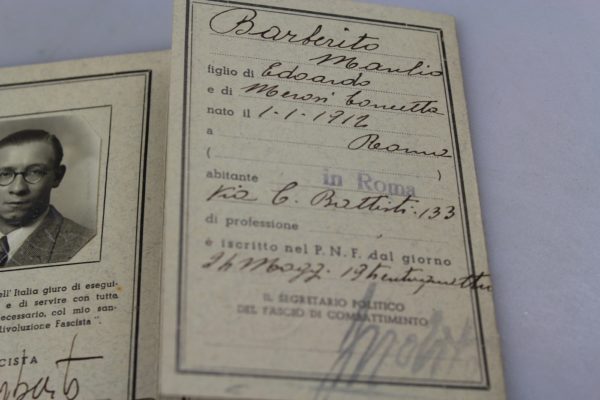 ell'Italia giuro di esegui-
e di servire con tutta
ecessario, col mio san-
ivoluzione Fascista".
CISTA
Barberito
Manlio
figlio di Edoardo
e di Merosi Concetta
nato il 1-1-1912
a Roma
( )
abitante in Roma
Via C. Battisti. 133
di professione
è iscritto nel P.N.F. dal giorno
24 Magg. 19
IL SEGRETARIO POLITICO
DEL FASCIO DI COMBATTIMENTO